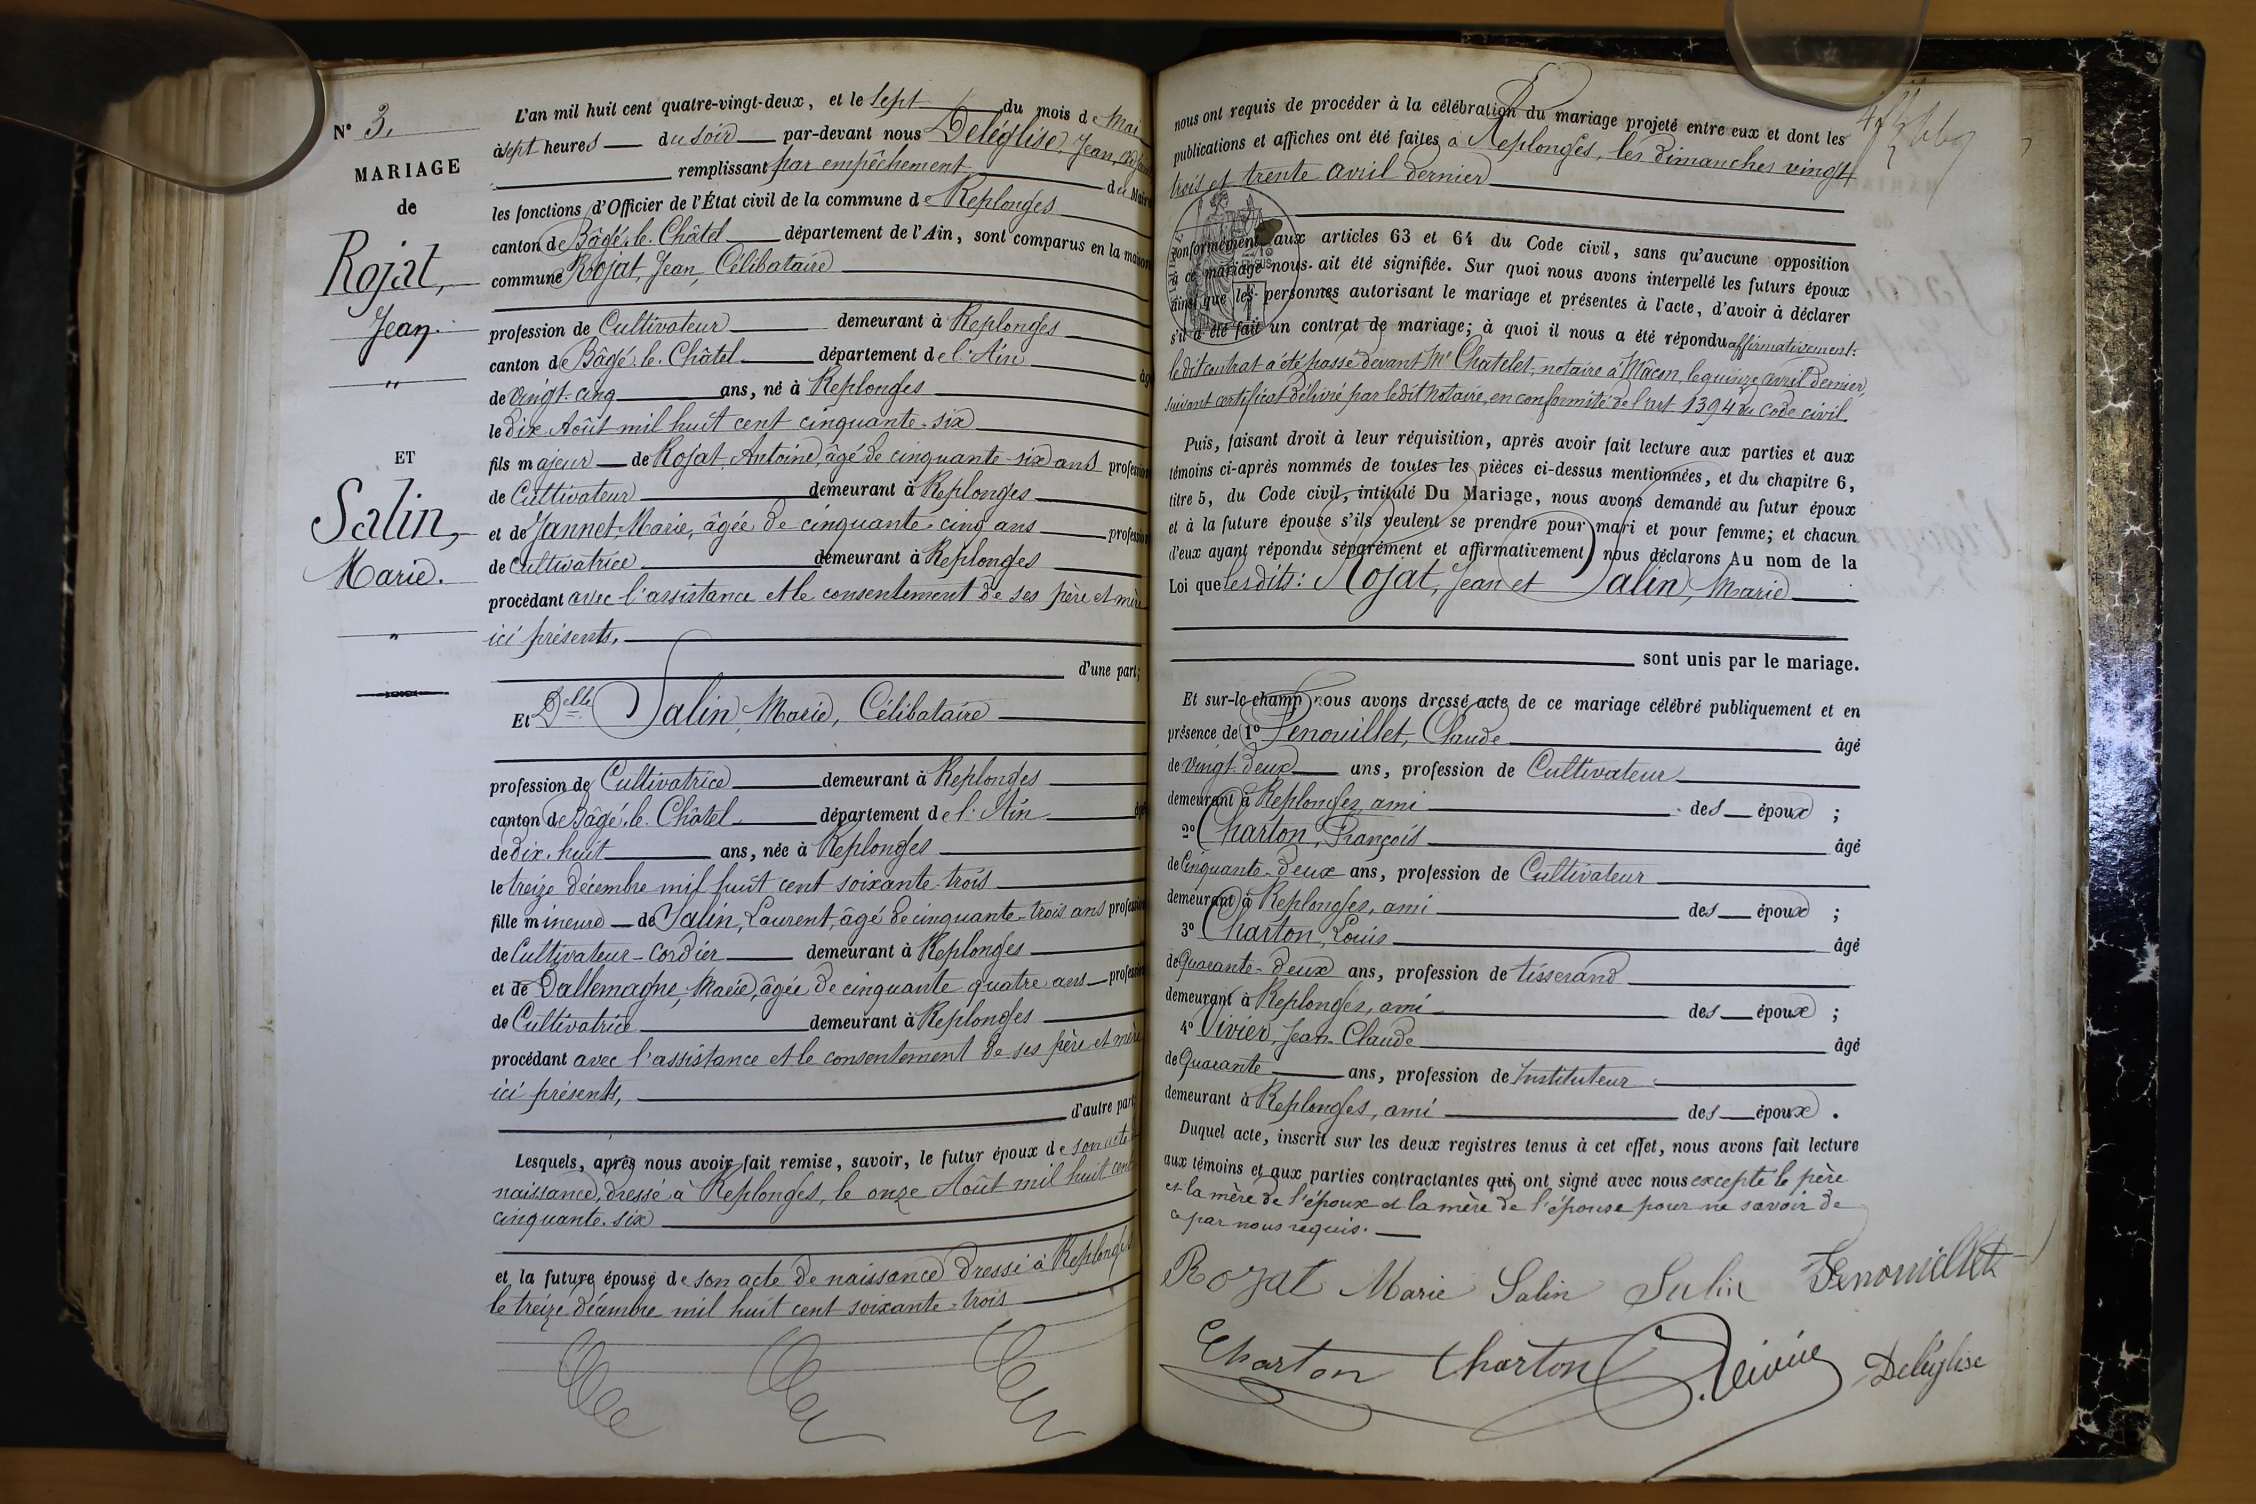 N° 3,
MARIAGE
de
Rojat,
Jean.
"
ET
Salin,
Marie.
"
L'an mil huit cent quatre-vingt-deux, et le sept du mois de Mai
à sept heures du soir par-devant nous Deléglise, Jean, adjoint
remplissant par empêchement du Maire
les fonctions d'Officier de l'État civil de la commune de Replonges
canton de Bâgé-le-Châtel département de l'Ain, sont comparus en la maison
commune Rojat, Jean, Célibataire
profession de Cultivateur demeurant à Replonges
canton de Bâgé-le-Châtel département de l'Ain âgé
de vingt-cinq ans, né à Replonges
le dix Août mil huit cent cinquante-six
fils majeur de Rojat, Antoine, âgé de cinquante-six ans profession
de Cultivateur demeurant à Replonges
et de Jannet, Marie, âgée de cinquante-cinq ans profession
de Cultivatrice demeurant à Replonges
procédant avec l'assistance et le consentement de ses père et mère
ici présents,
d'une part;
Et Delle Salin, Marie, Célibataire
profession de Cultivatrice demeurant à Replonges
canton de Bâgé-le-Châtel département de l'Ain âgée
de dix-huit ans, née à Replonges
le treize décembre mil huit cent soixante-trois
fille mineure de Salin, Laurent, âgé de cinquante-trois ans profession
de Cultivateur-Cordier demeurant à Replonges
et de Dallemagne, Marie, âgée de cinquante-quatre ans profession
de Cultivatrice demeurant à Replonges
procédant avec l'assistance et le consentement de ses père et mère
ici présents,
d'autre part;
Lesquels, après nous avoir fait remise, savoir, le futur époux de son acte de
naissance, dressé à Replonges, le onze Août mil huit cent
cinquante-six
et la future épouse de son acte de naissance dressé à Replonges
le treize décembre mil huit cent soixante-trois
nous ont requis de procéder à la célébration du mariage projeté entre eux et dont les
publications et affiches ont été faites à Replonges, les dimanches vingt
trois et trente avril dernier
conformément aux articles 63 et 64 du Code civil, sans qu'aucune opposition
à ce mariage nous ait été signifiée. Sur quoi nous avons interpellé les futurs époux
ainsi que les personnes autorisant le mariage et présentes à l'acte, d'avoir à déclarer
s'il a été fait un contrat de mariage; à quoi il nous a été répondu affirmativement:
le dit contrat a été passé devant Me Chatelet, notaire à Mâcon, le quinze avril dernier,
suivant certificat délivré par le dit notaire, en conformité de l'art 1394 du Code civil.
Puis, faisant droit à leur réquisition, après avoir fait lecture aux parties et aux
témoins ci-après nommés de toutes les pièces ci-dessus mentionnées, et du chapitre 6,
titre 5, du Code civil, intitulé Du Mariage, nous avons demandé au futur époux
et à la future épouse s'ils veulent se prendre pour mari et pour femme; et chacun
d'eux ayant répondu séparément et affirmativement, nous déclarons Au nom de la
Loi que les dits: Rojat, Jean et Salin, Marie
sont unis par le mariage.
Et sur-le-champ nous avons dressé acte de ce mariage célébré publiquement et en
présence de 1° Penouillet, Claude âgé
de vingt-deux ans, profession de Cultivateur
demeurant à Replonges, ami des époux ;
2° Charton, François âgé
de Cinquante-deux ans, profession de Cultivateur
demeurant à Replonges, ami des époux ;
3° Charton, Louis âgé
de Quarante-deux ans, profession de tisserand
demeurant à Replonges, ami des époux ;
4° Vivier, Jean-Claude âgé
de Quarante ans, profession de Instituteur
demeurant à Replonges, ami des époux .
Duquel acte, inscrit sur les deux registres tenus à cet effet, nous avons fait lecture
aux témoins et aux parties contractantes qui ont signé avec nous excepté le père
et la mère de l'époux et la mère de l'épouse pour ne savoir de
ce par nous requis.
Rojat Marie Salin Salin Penouillet
Charton Charton Vivier Deléglise